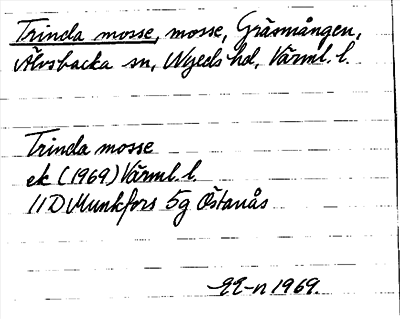 Trinda mosse, mosse, Gräsmången,
Älvsbacka sn, Nyeds hd, Värml. l.
Trinda mosse
ek (1969) Värml. l.
11D Munkfors 5g Östanås
-EE-n 1969.